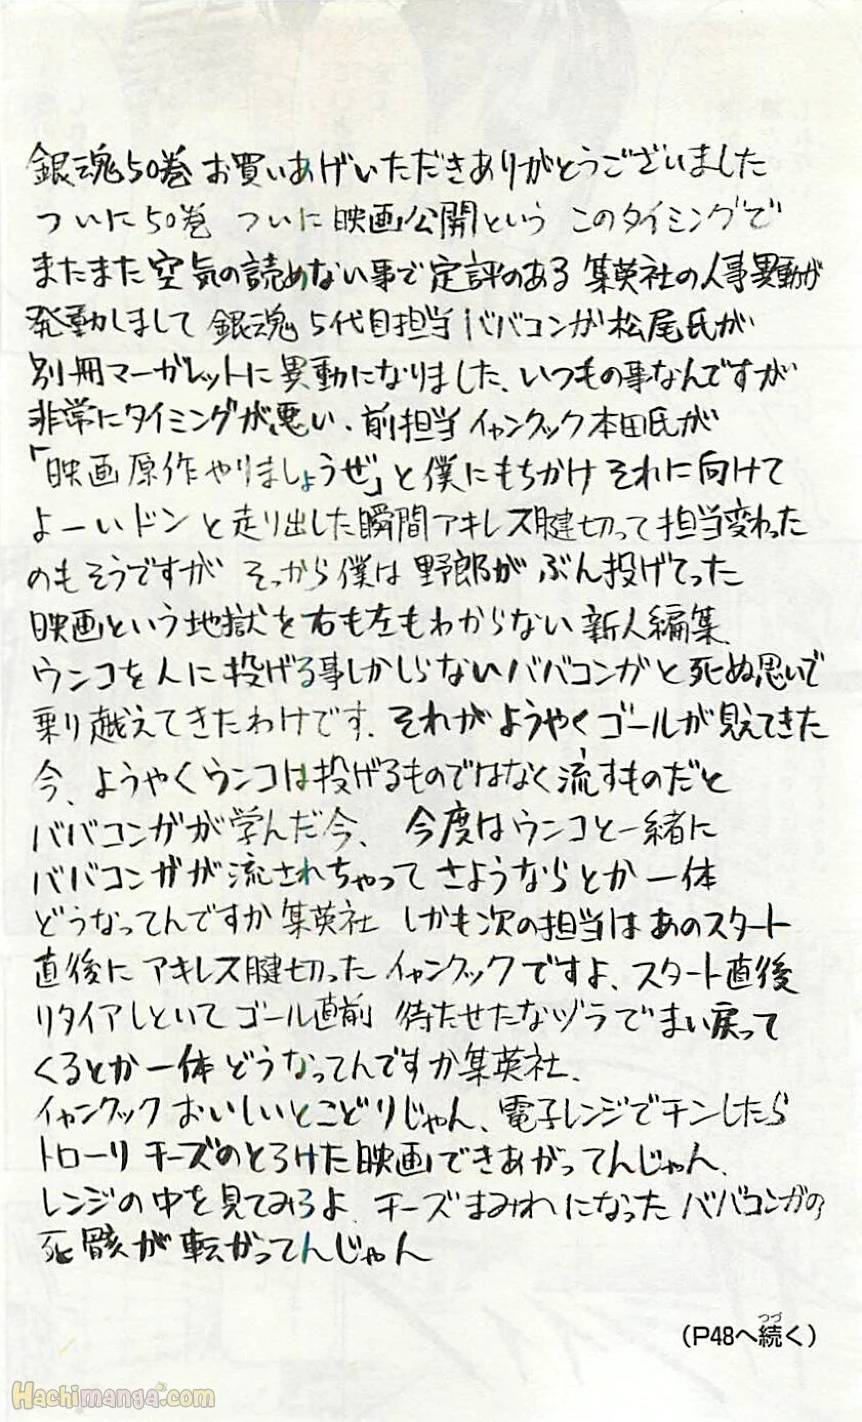 銀魂50巻 お買いあげいただきありがとうございました
ついに50巻 ついに映画公開という このタイミングで
またまた空気の読めない事で定評のある 集英社の人事異動が
発動しまして 銀魂 5代目担当 ババコンガ松尾氏が
別冊マーガレットに異動になりました、いつもの事なんですが
非常にタイミングが悪い、前担当 イャンクック本田氏が
「映画原作やりましょうぜ」と僕にもちかけ それに向けて
よーいドンと走り出した瞬間アキレス腱切って担当変わった
のもそうですが そっから僕は 野郎が ぶん投げてった
映画という地獄を右も左もわからない新人編集、
ウンコを人に投げる事しかしらないババコンガと死ぬ思いで
乗り越えてきたわけです、それがようやくゴールが見えてきた
今、ようやくウンコは投げるものではなく流すものだと
ババコンガが学んだ今、 今度はウンコと一緒に
ババコンガが流されちゃって さようならとか 一体
どうなってんですか集英社 しかも次の担当は あのスタート
直後に アキレス腱切った イャンクックですよ、スタート直後
リタイアしといて ゴール直前 待たせたなヅラで まい戻って
くるとか一体 どうなってんですか集英社、
イャンクック おいしいとこどりじゃん、電子レンジでチンしたら
トローリ チーズのとろけた映画できあがってんじゃん、
レンジの中を見てみろよ、チーズまみれになった ババコンガの
死骸が転がってんじゃん
(P48へ続く)
つづ
Hachimanga.com